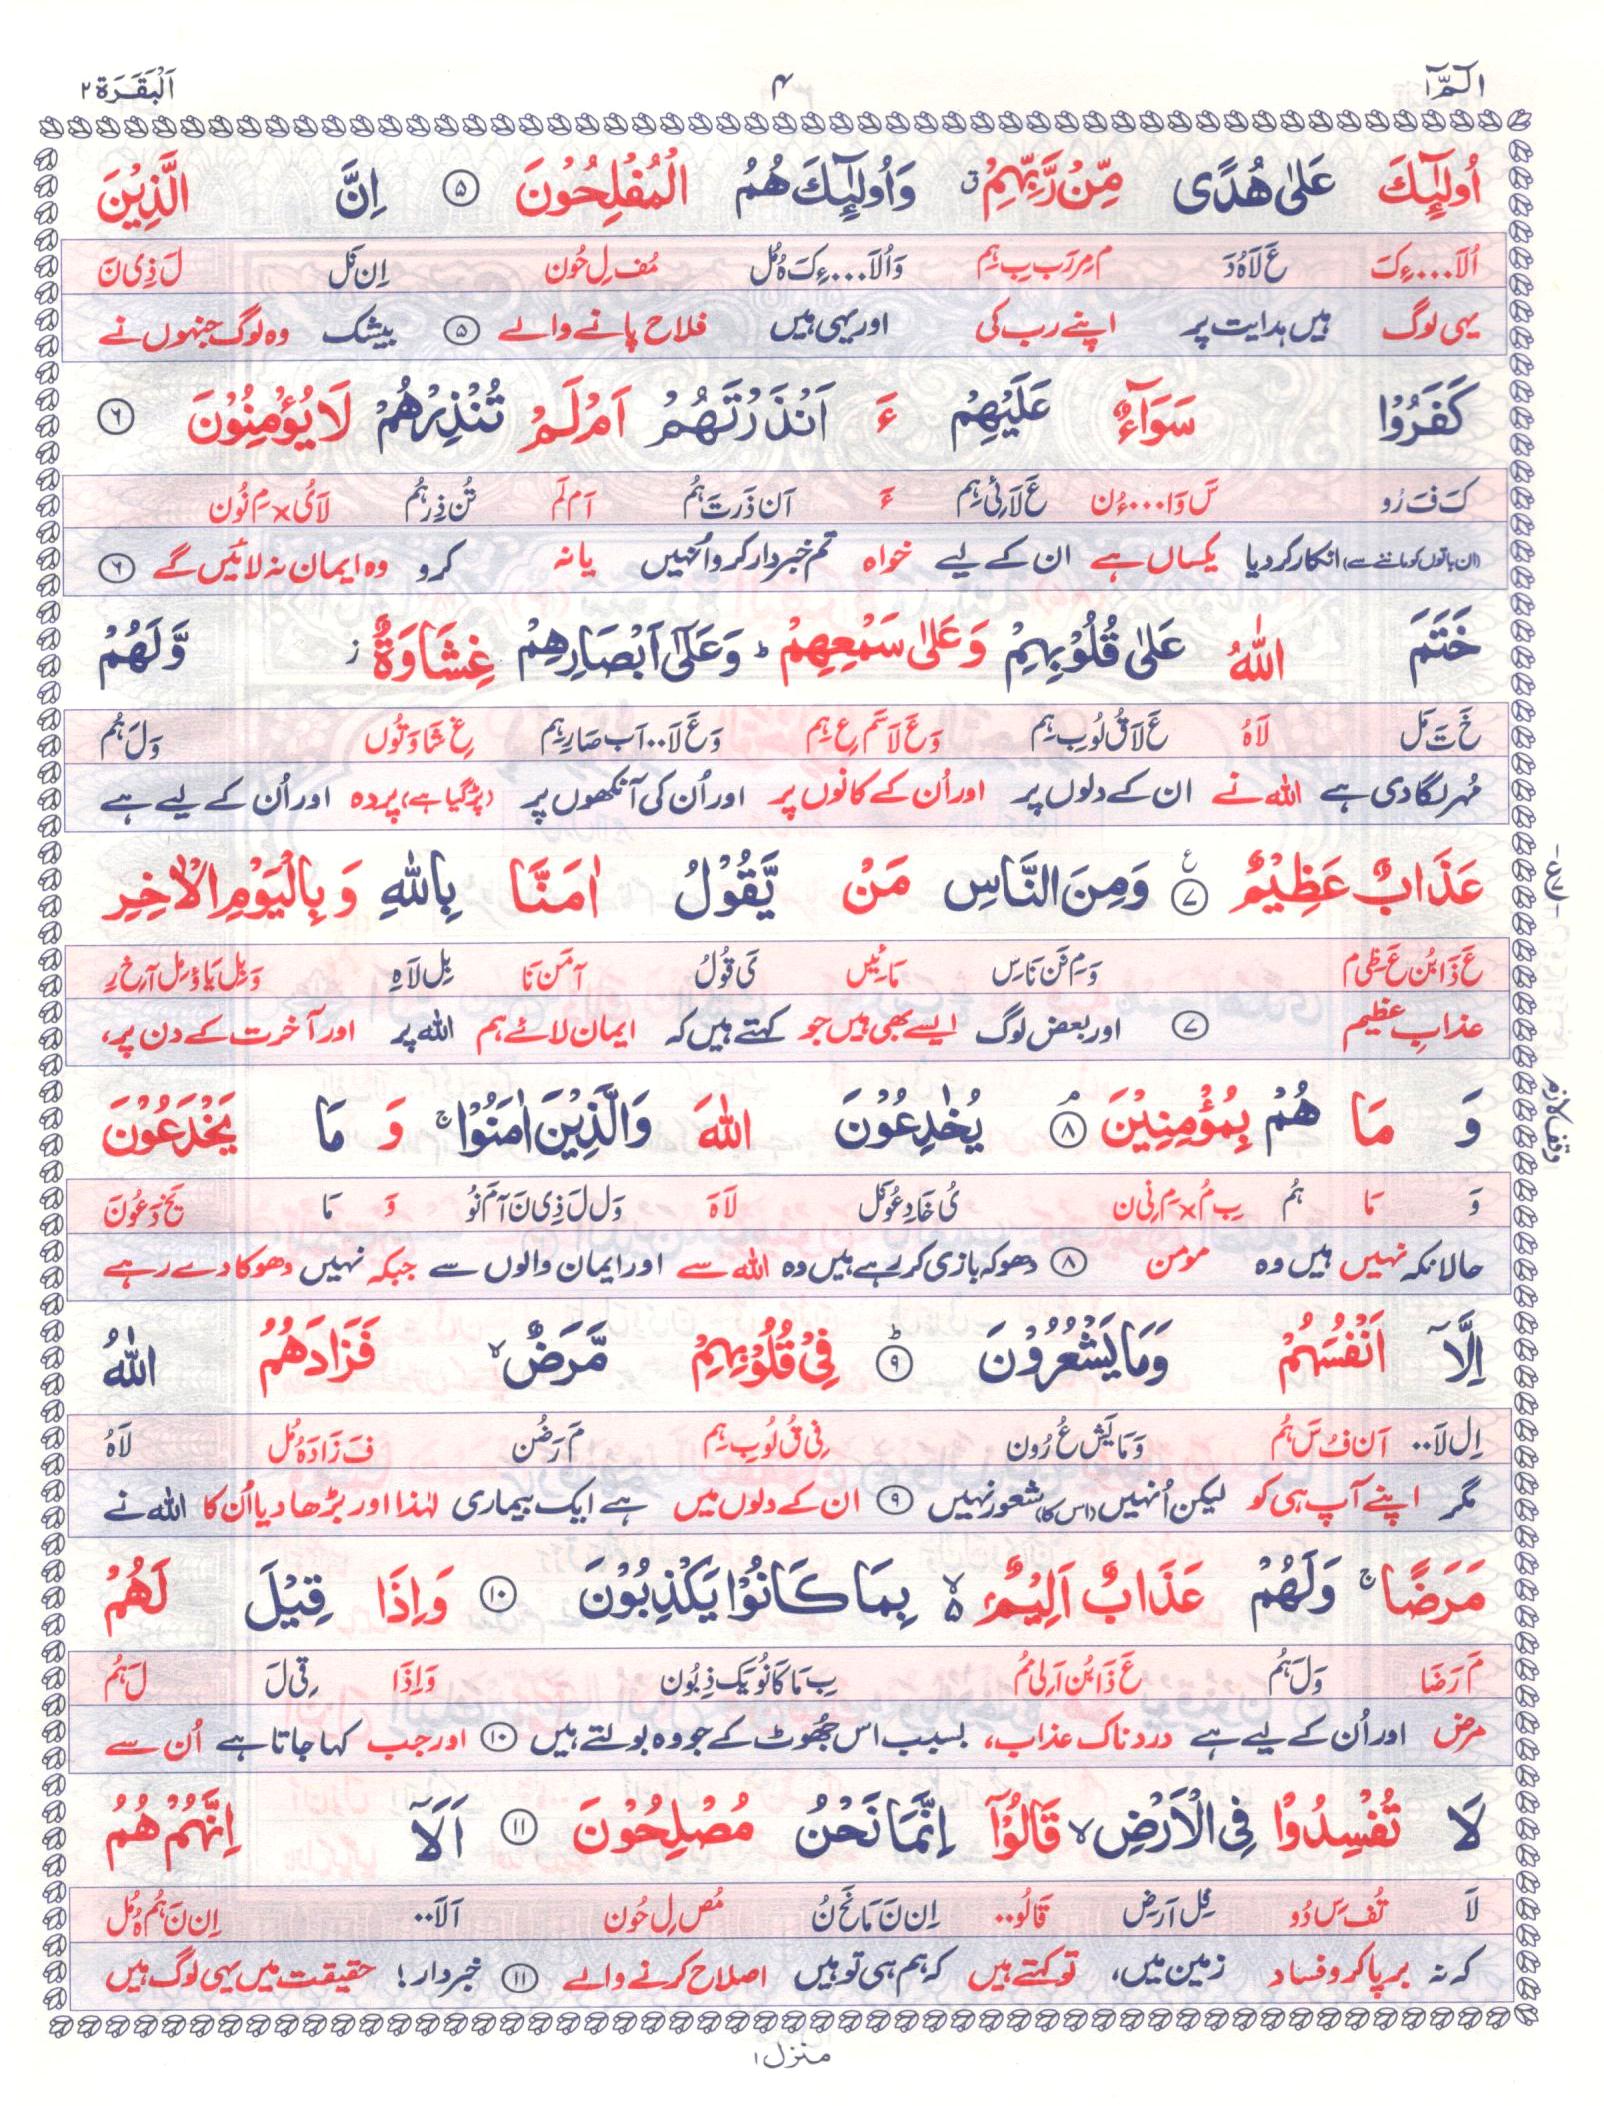 الٓمّٓ ۱ ۴ اَلْبَقَرَة ۲
اُولٰٓئِكَ عَلٰى هُدًى مِّنْ رَّبِّهِمْ ۙ وَاُولٰٓئِكَ هُمُ الْمُفْلِحُوْنَ ۵ اِنَّ الَّذِيْنَ
اُلَآ...ءِكَ عَ لَاهُ دَ م مِررَب بِ ہِم وَاُلَا...ءِكَ هُ مُل مُف لِ حُون اِن نَل لَ ذِی نَ
یہی لوگ ہیں ہدایت پر اپنے رب کی اور یہی ہیں فلاح پانے والے ۵ بیشک وہ لوگ جنہوں نے
كَفَرُوْا سَوَآءٌ عَلَيْهِمْ ءَ اَنْذَرْتَهُمْ اَمْ لَمْ تُنْذِرْهُمْ لَا يُؤْمِنُوْنَ ۶
كَ فَ رُو سَ وَا...ءُن عَ لَائی ہِم ءَ اَن ذَرتَ ہُم اَم لَم تُن ذِر ہُم لَا یُ×مِ نُون
(ان باتوں کو ماننے سے) انکار کر دیا یکساں ہے ان کے لیے خواہ تم خبردار کرو اُنہیں یا نہ کرو وہ ایمان نہ لائیں گے ۶
خَتَمَ اللهُ عَلٰى قُلُوْبِهِمْ وَعَلٰى سَمْعِهِمْ ؕ وَعَلٰٓى اَبْصَارِهِمْ غِشَاوَةٌ ز وَّلَهُمْ
خَ تَ مَل لَاهُ عَ لَا قُ لُوبِ ہِم وَعَ لَا سَم عِ ہِم وَعَ لَا..اَب صَارِ ہِم غِ شَا وَ تُوں وَلَ ہُم
مُہر لگا دی ہے اللہ نے ان کے دلوں پر اور اُن کے کانوں پر اور اُن کی آنکھوں پر (پڑ گیا ہے) پردہ اور اُن کے لیے ہے
عَذَابٌ عَظِيْمٌ ۷ ع وَمِنَ النَّاسِ مَنْ يَّقُوْلُ اٰمَنَّا بِاللهِ وَ بِالْيَوْمِ الْاٰخِرِ
عَ ذَا بُن عَ ظِی م وَ مِ نَن نَاس مَائیں یَ قُولُ آمَن نَا بِل لَاہِ وَ بِل یَاؤ مِل آخِ رِ
عذابِ عظیم ۷ اور بعض لوگ ایسے بھی ہیں جو کہتے ہیں کہ ایمان لائے ہم اللہ پر اور آخرت کے دن پر،
وَ مَا هُمْ بِمُؤْمِنِيْنَ ۘ ۸ يُخٰدِعُوْنَ اللهَ وَالَّذِيْنَ اٰمَنُوْا ۚ وَ مَا يَخْدَعُوْنَ
وقف لازم
وَ مَا ہُم بِ مُ×مِ نِی ن یُ خَادِ عُو نَل لَاہَ وَل لَ ذِی نَ آ مَ نُو وَ مَا یَخ دَعُونَ
حالانکہ نہیں ہیں وہ مومن ۸ دھوکہ بازی کر رہے ہیں وہ اللہ سے اور ایمان والوں سے جبکہ نہیں دھوکا دے رہے
اِلَّآ اَنْفُسَهُمْ وَمَا يَشْعُرُوْنَ ۹ ؕ فِىْ قُلُوْبِهِمْ مَّرَضٌ ۙ فَزَادَهُمُ اللهُ
اِل لَا.. اَن فُ سَ ہُم وَمَا یَش عُ رُون فِی قُ لُوبِ ہِم مَ رَضُن فَ زَادَ ہُ مُل لَاہُ
مگر اپنے آپ ہی کو لیکن اُنہیں (اس کا) شعور نہیں ۹ ان کے دلوں میں ہے ایک بیماری لہٰذا اور بڑھا دیا اُن کا اللہ نے
مَرَضًا ۚ وَلَهُمْ عَذَابٌ اَلِيْمٌ ۙ ۵ بِمَا كَانُوْا يَكْذِبُوْنَ ۱۰ وَاِذَا قِيْلَ لَهُمْ
مَ رَضَا وَلَ ہُم عَ ذَا بُن اَ لِی مُم بِ مَا کَانُو یَک ذِ بُون وَ اِذَا قِی لَ لَ ہُم
مرض اور اُن کے لیے ہے دردناک عذاب، بسبب اس جھُوٹ کے جو وہ بولتے ہیں ۱۰ اور جب کہا جاتا ہے اُن سے
لَا تُفْسِدُوْا فِى الْاَرْضِ ۙ قَالُوْٓا اِنَّمَا نَحْنُ مُصْلِحُوْنَ ۱۱ اَلَآ اِنَّهُمْ هُمُ
لَا تُف سِ دُو فِل اَرض قَالُو.. اِن نَ مَا نَح نُ مُص لِ حُون اَلَا.. اِن نَ ہُم ہُ مُل
کہ نہ برپا کرو فساد زمین میں، تو کہتے ہیں کہ ہم ہی تو ہیں اصلاح کرنے والے ۱۱ خبردار! حقیقت میں یہی لوگ ہیں
منزل ۱